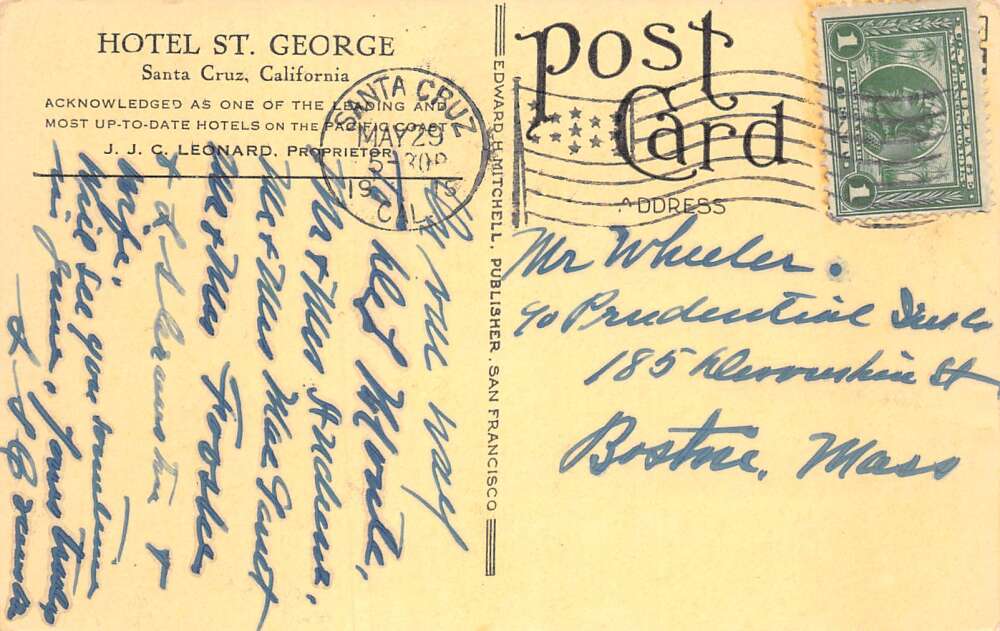 HOTEL ST. GEORGE
Santa Cruz, California
ACKNOWLEDGED AS ONE OF THE LEADING AND
MOST UP-TO-DATE HOTELS ON THE PACIFIC COAST
J. J. C. LEONARD, PROPRIETOR
On our way
to Del Monte,
Mr & Mrs
Mr & Mrs
Mr & Mrs
&
Wife.
Will see you sometime
in June. Yours truly
EDWARD H. MITCHELL, PUBLISHER, SAN FRANCISCO
Post Card
SANTA CRUZ
MAY 29
CAL.
ADDRESS
1 1
Mr Wheeler.
c/o Prudential Ins Co
185 Devonshire St
Boston, Mass